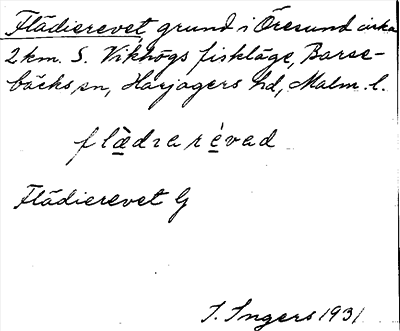 Flädierevet, grund i Öresund cirka
2 km. S. Vikhögs fiskläge, Barse-
bäcks sn, Harjagers hd, Malm. l.
flädıarévad
Flädierevet G
I. Ingers 1931